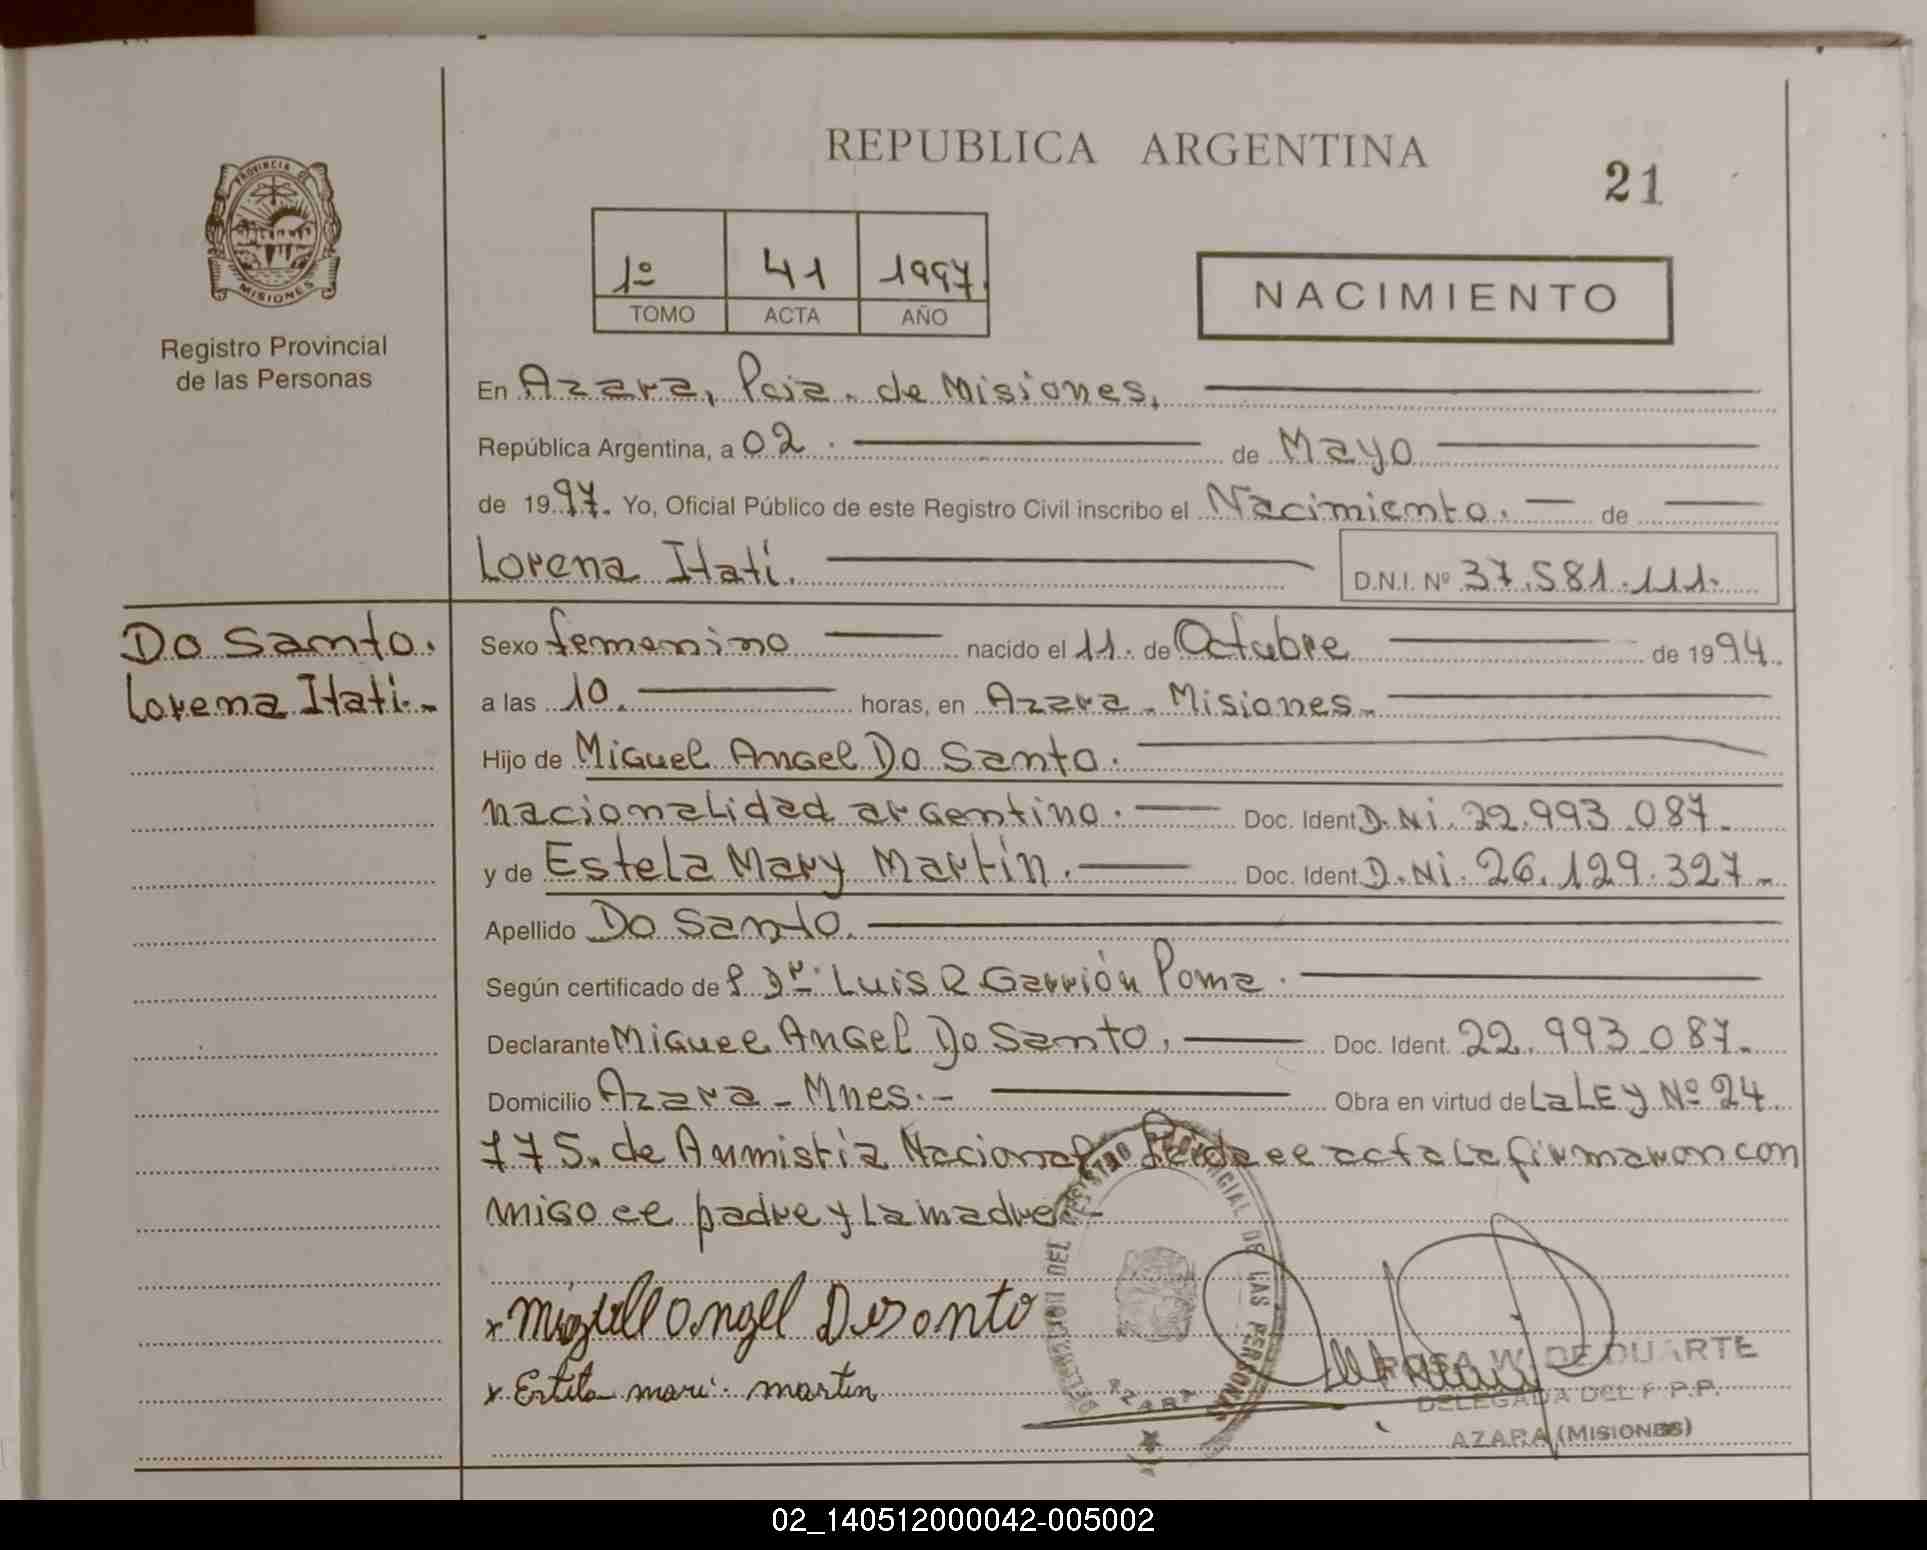 REPUBLICA ARGENTINA
21
PROVINCIA DE
MISIONES
Registro Provincial
de las Personas
1º 41 1997.
TOMO ACTA AÑO
NACIMIENTO
En Azara, Pcia. de Misiones.
República Argentina, a 02. de Mayo
de 1997. Yo, Oficial Público de este Registro Civil inscribo el Nacimiento. de
Lorena Itatí. D.N.I. Nº 37.581.111.
Do Santo.
Lorena Itatí.-
Sexo femenino nacido el 11. de Octubre de 1994.
a las 10. horas, en Azara - Misiones.
Hijo de Miguel Angel Do Santo.
nacionalidad argentino. Doc. Ident D.Ni. 22.993.087.
y de Estela Mary Martín. Doc. Ident D.Ni. 26.129.327.
Apellido Do Santo.
Según certificado de Dr. Luis R Garrión Poma.
Declarante Miguel Angel Do Santo. Doc. Ident. 22.993.087.
Domicilio Azara - Mnes.- Obra en virtud de La LEY Nº 24
775. de Anmistia Nacional Leida el acta la firmaron con
migo el padre y la madre
x Miguell angel Dosonto
x Estela mari martin
DELEGACION DEL REGISTRO PROVINCIAL DE LAS PERSONAS
AZARA
ROSA W. DE DUARTE
DELEGADA DEL R.P.P.
AZARA (MISIONES)
02_140512000042-005002